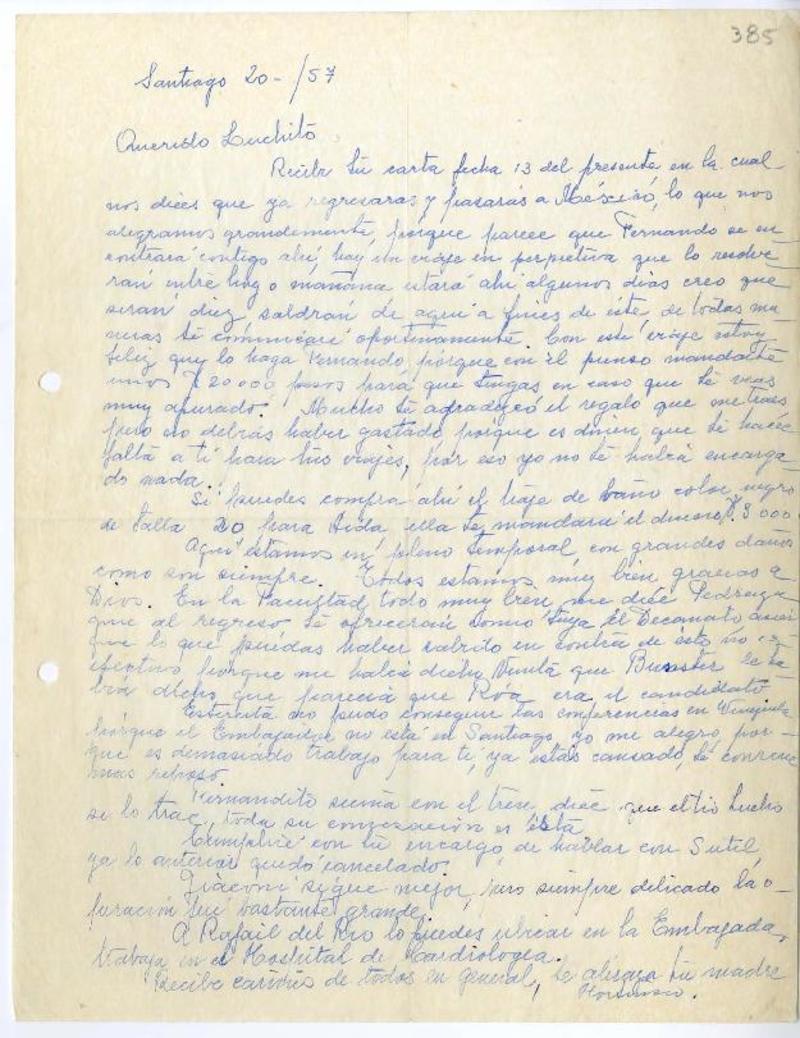 385
Santiago 20-/57
Querido Luchito
Recibí tú carta fecha 13 del presente en la cual
nos dices que ya regresaras y pasarás a México, lo que nos
alegramos grandemente, porque parece que Fernando se en
contrará contigo ahí, hay un viaje en perpetiva que lo resolve
rán entre hoy o mañana estará ahi algunos dias creo que
serán diez, saldrán de aquí a fines de éste, de todas ma
neras te comunicaré oportunamente. Con este viaje estoy
feliz que lo haga Fernando, porque con él pienso mandarte
unos $ 20000 pesos para que tengas en caso que te veas
muy apurado. Mucho te agradezco el regalo que me traes
pero no debías haber gastado, porque es dinero que te hace
falta a ti para tus viajes, por eso yo no te había encarga
do nada.
Si puedes compra ahí el traje de baño color negro
de talla 20 para Aida, ella te mandará el dinero $. 3000
Aquí estamos en pleno temporal con grandes daños
como son siempre. Todos estamos muy bien gracias a
Dios. En la Facultad todo muy bien, me dice Pedraza
que al regreso te ofreceran como tuya el Decanato asi
que lo que puedas haber sabido en contra de esto no es
efectivo porque me había dicho que Buster le ha
bía dicho que parecía que Róa era el candidato
Estercita no pudo conseguir las conferencias en Venezuela
porque el Embajador no está en Santiago, yo me alegro, por-
que es demasiado trabajo para ti, ya estás cansado, te conviene
mas reposo.
Fernandito sueña con el tren, dice que el tío Lucho
se lo trae, toda su conversación es ésta
Cumpliré con tu encargo de hablar con Sutil,
ya lo anterior quedó cancelado.
Giaconi sigue mejor, pero siempre delicado la o-
peración fué bastante grande.
A Rafael del Rio lo puedes ubicar en la Embajada,
trabaja en el Hospital de Cardiología.
Recibe cariños de todos en general, te abraza tu madre
Hortensia.